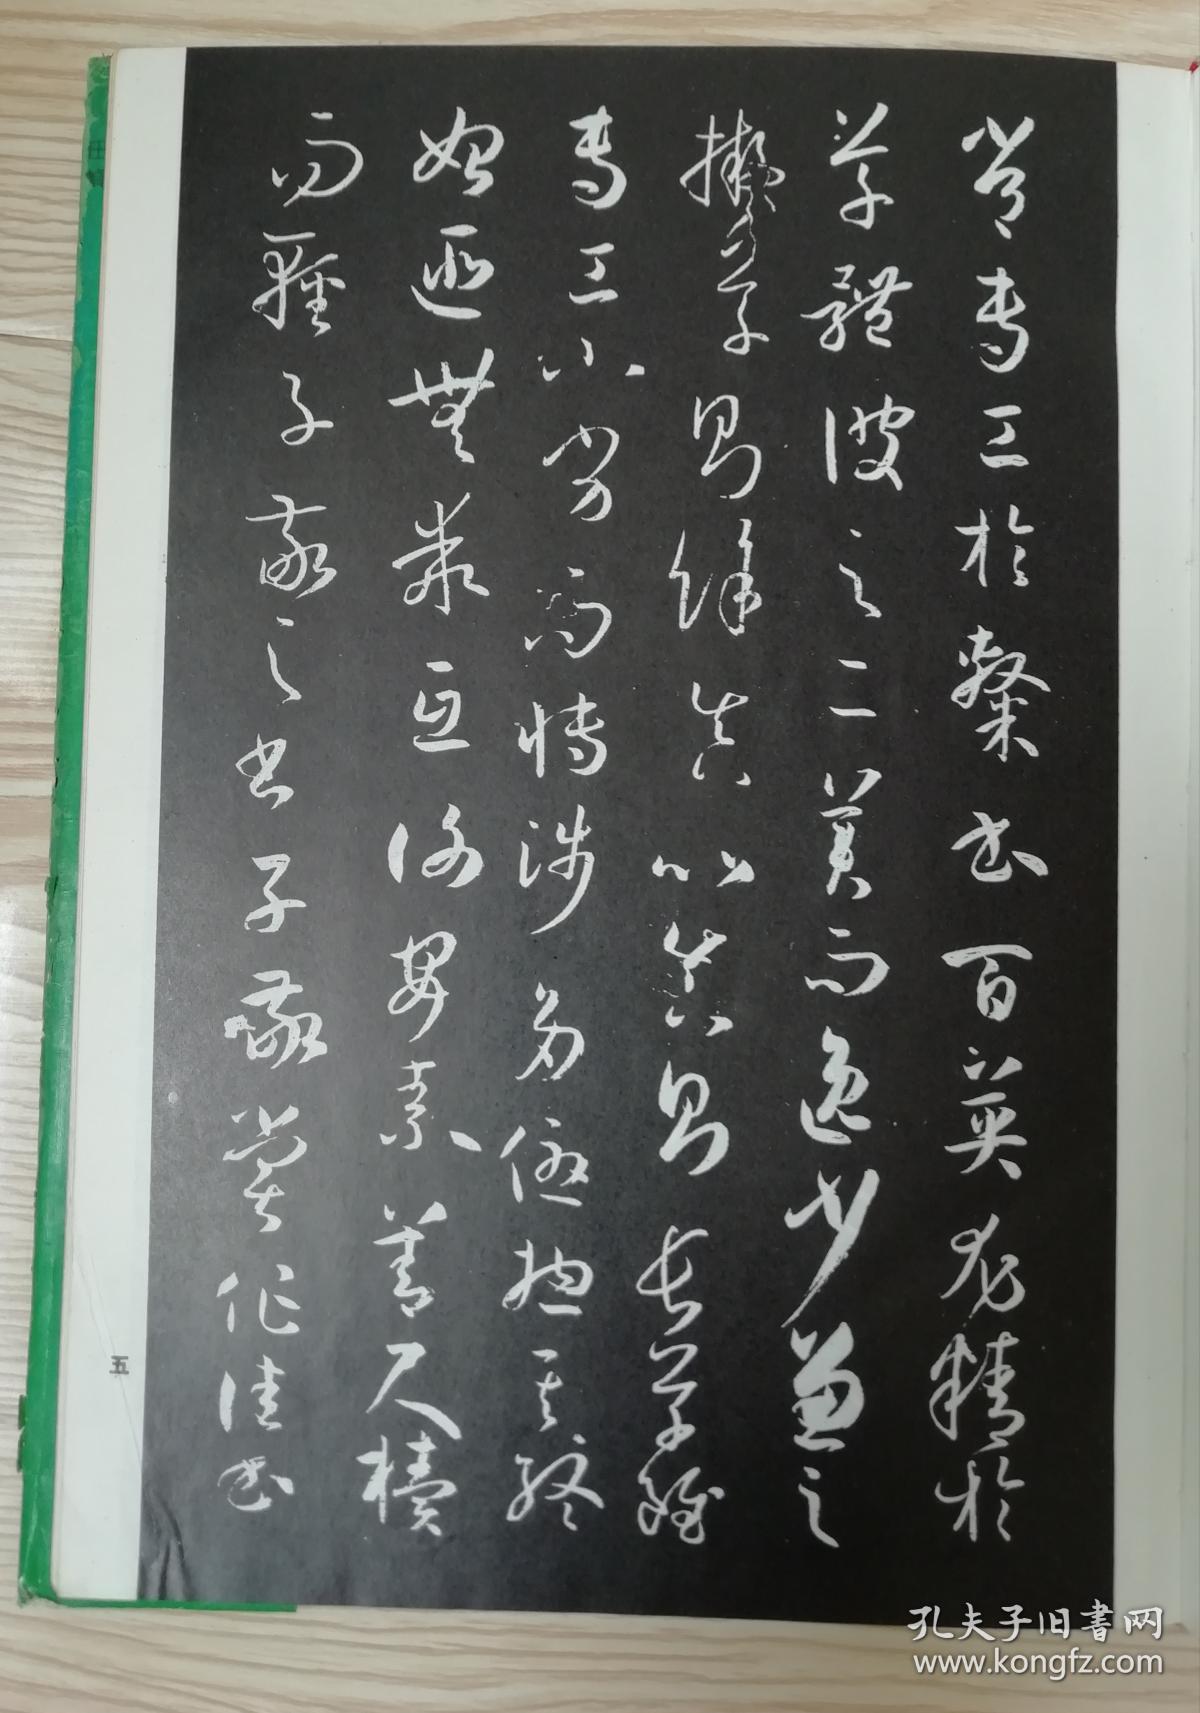 常專工於隸書百英尤精於
草體彼之二美而逸少兼之
擬草則餘真比真則長草雖
專工小劣而博涉多優揔其終
始匪無乖互謝安素善尺牘
而輕子敬之書子敬嘗作佳書
五
孔夫子旧書网
www.kongfz.com